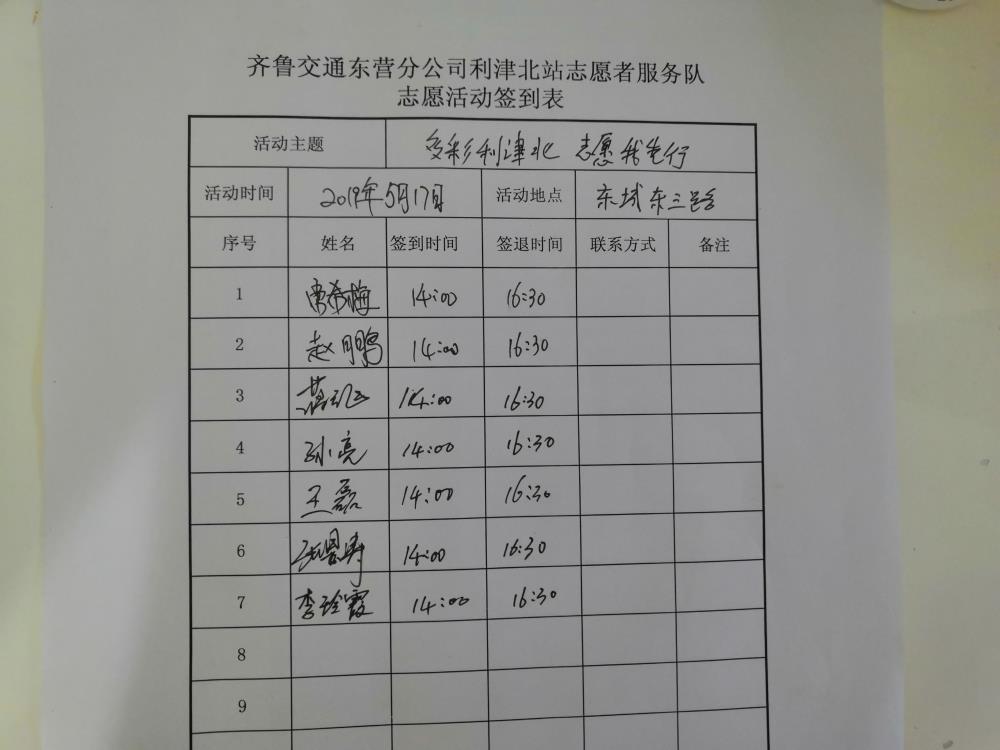 齐鲁交通东营分公司利津北站志愿者服务队
志愿活动签到表
活动主题 多彩利津北 志愿我先行
活动时间 2019年5月17日 活动地点 东城东三路
序号 姓名 签到时间 签退时间 联系方式 备注
1 常希梅 14:00 16:30
2 赵鹏 14:00 16:30
3 14:00 16:30
4 孙亮 14:00 16:30
5 王磊 14:00 16:30
6 14:00 16:30
7 李玲霞 14:00 16:30
8
9